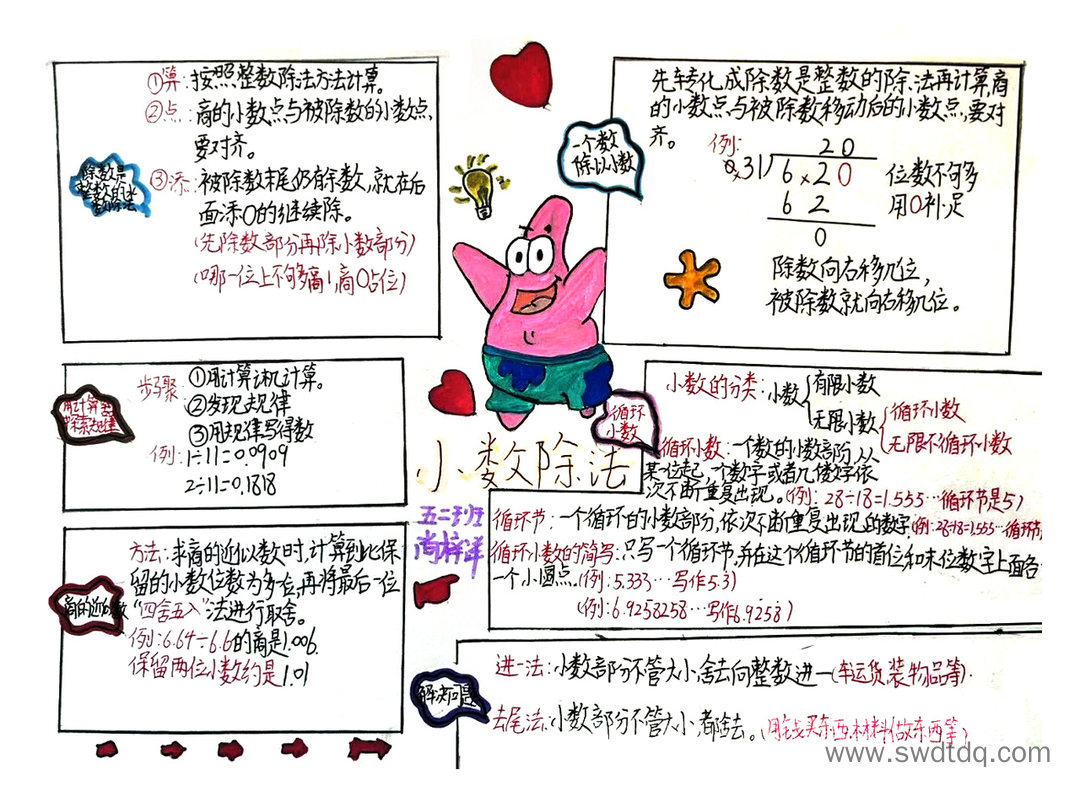 除数是
整数的除法
①算:按照整数除法方法计算。
②点:商的小数点与被除数的小数点,
要对齐。
③添:被除数末尾仍有余数,就在后
面添0的继续除。
(先除数部分再除小数部分)
(哪一位上不够商1,商0占位)
一个数
除以小数
先转化成除数是整数的除法再计算,商
的小数点与被除数移动后的小数点,要对
齐。
例:
20
0.31 6.20
62
0
位数不够
用0补足
除数向右移几位,
被除数就向右移几位。
用计算器
探索规律
步骤:①用计算机计算。
②发现规律
③用规律写得数
例:1÷11=0.0909
2÷11=0.1818
小数除法
五二班
循环
小数
小数的分类:小数
有限小数
无限小数
循环小数
无限不循环小数
循环小数:一个数的小数部分,从
某位起,一个数字或者几个数字依
次不断重复出现。(例:28÷18=1.555…循环节是5)
循环节:一个循环的小数部分,依次不断重复出现的数字(例:28÷18=1.555…循环节
循环小数的简写:只写一个循环节,并在这个循环节的首位和末位数字上面各
一个小圆点。(例:5.333…写作5.3)
(例:6.9258258…写作6.9258)
商的近似数
方法:求商的近似数时,计算到比保
留的小数位数为多位,再将最后一位
"四舍五入"法进行取舍。
例:6.64÷6.6的商是1.006.
保留两位小数约是1.01
解决问题
进一法:小数部分不管大小,舍去向整数进一(车运货,装物品等)
去尾法:小数部分不管大小都舍去。(用钱买东西.材料做东西等)
www.swdtdq.com